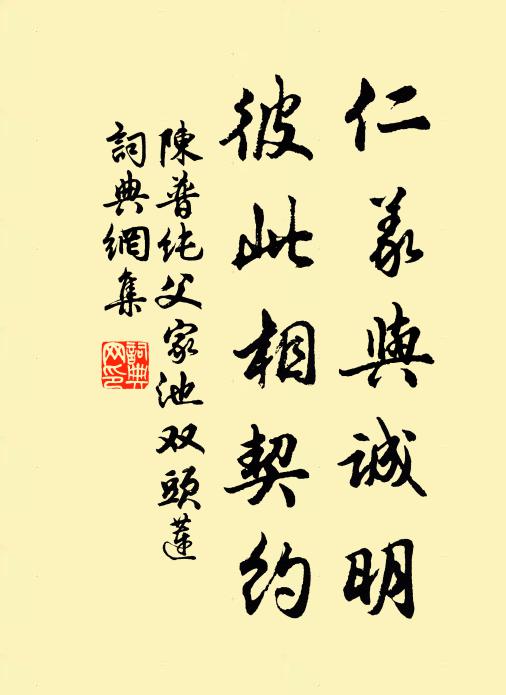 仁義與誠明
彼此相契約
陳普纯父家池双頭蓮
詞典網集
詞典网印